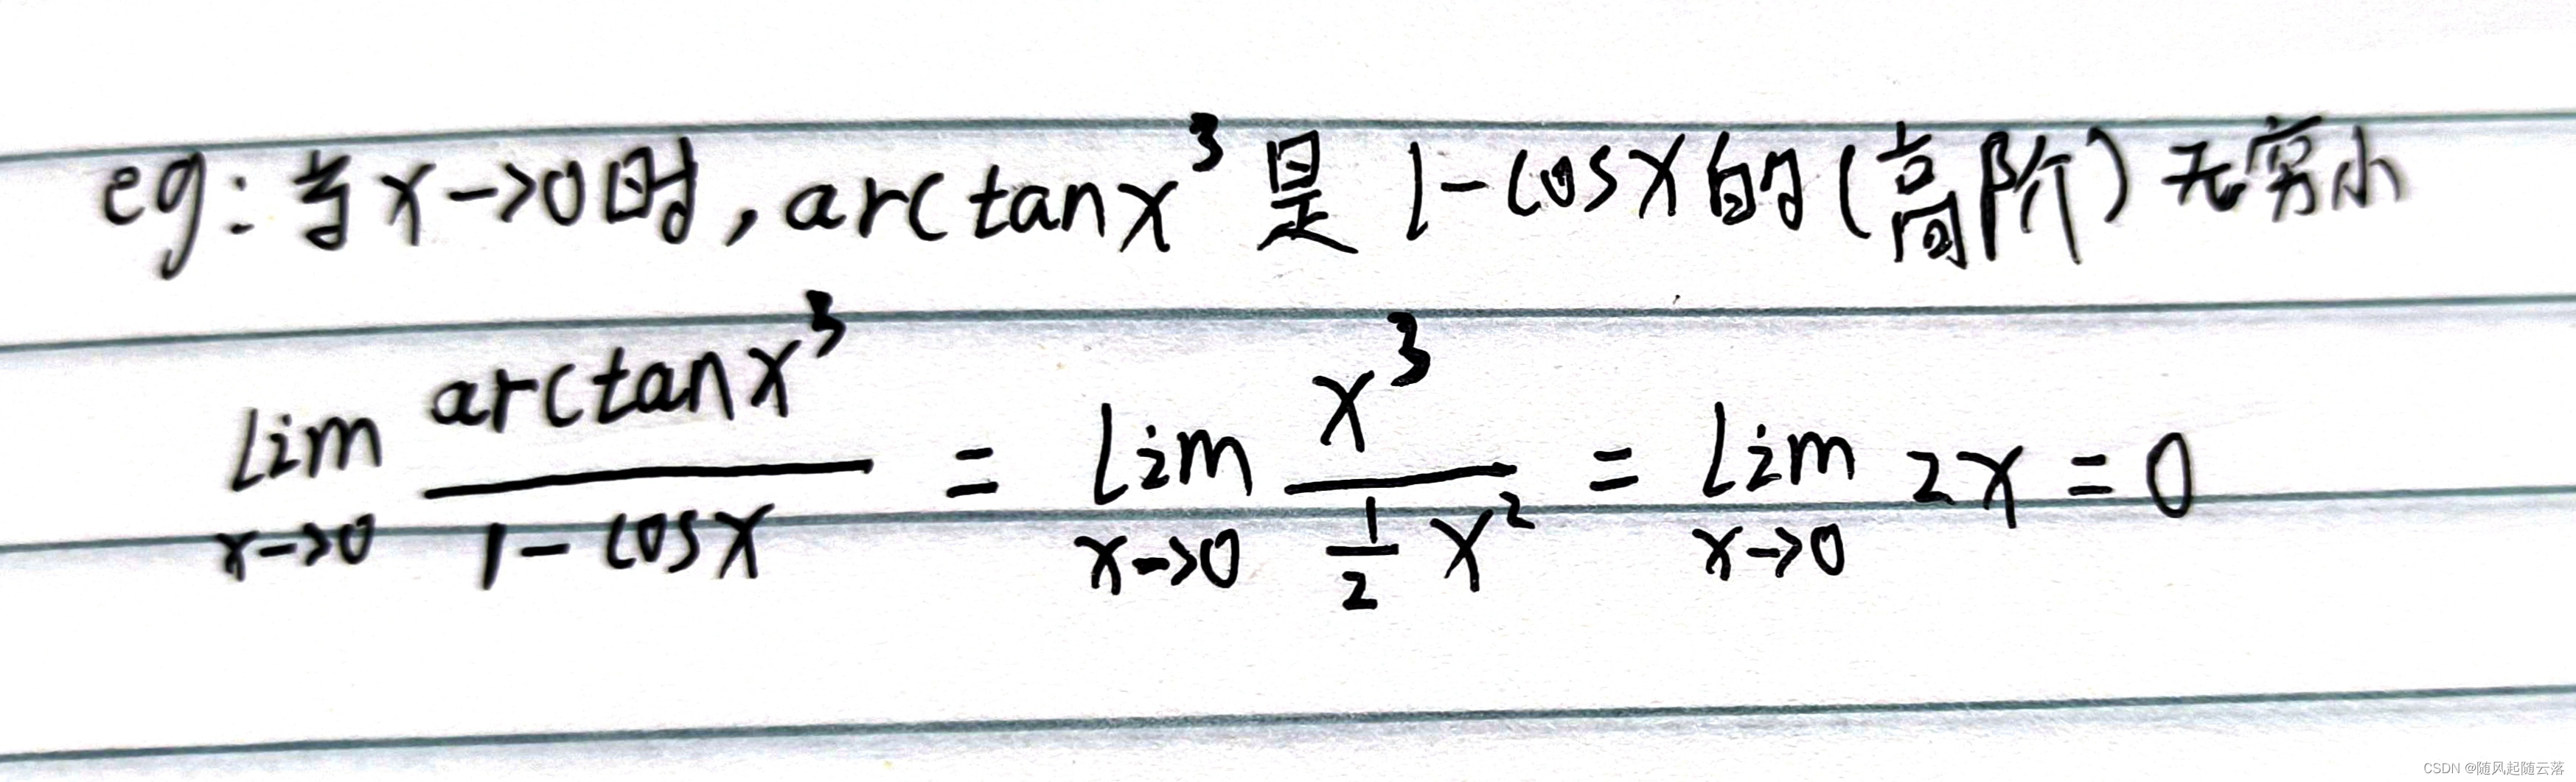 eg: 当x->0时, arctanx³是 1-cosx的(高阶)无穷小
lim x->0 arctanx³ / 1-cosx = lim x->0 x³ / ½x² = lim x->0 2x = 0
CSDN @随风起随云落